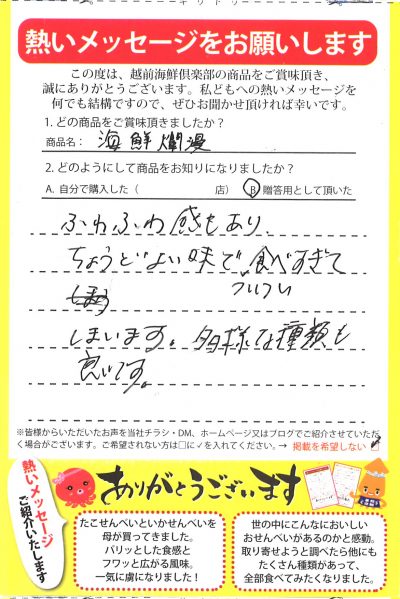 キリトリ
熱いメッセージをお願いします
この度は、越前海鮮倶楽部の商品をご賞味頂き、
誠にありがとうございます。私どもへの熱いメッセージを
何でも結構ですので、ぜひお聞かせ頂ければ幸いです。
1. どの商品をご賞味頂きましたか?
商品名： 海鮮爛漫
2. どのようにして商品をお知りになりましたか?
A. 自分で購入した（ 店） B 贈答用として頂いた
ふわふわ感もあり、
ちょうどよい味で食べすぎて
ついつい
しまいます。多様な種類も
良いです。
※皆様からいただいたお声を当社チラシ・DM、ホームページ又はブログでご紹介させていただ
く場合がございます。ご希望されない方は□に✓を入れてください。→ 掲載を希望しない
熱いメッセージ
ご紹介いたします
ありがとうございます
たこせんべいといかせんべいを
母が買ってきました。
パリッとした食感と
フワッと広がる風味。
一気に虜になりました!
世の中にこんなにおいしい
おせんべいがあるのかと感動。
取り寄せようと調べたら他にも
たくさん種類があって、
全部食べてみたくなりました。